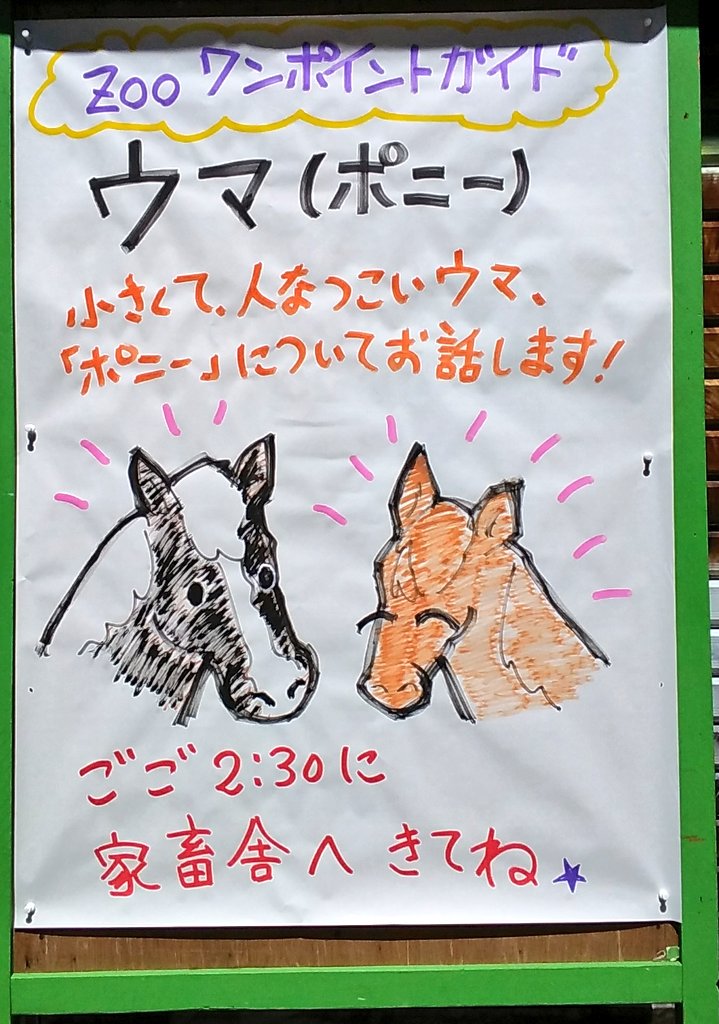 Zoo ワンポイントガイド
ウマ(ポニー)
小さくて、人なつこいウマ、
「ポニー」についてお話します!
ごご2:30に
家畜舎へ きてね★